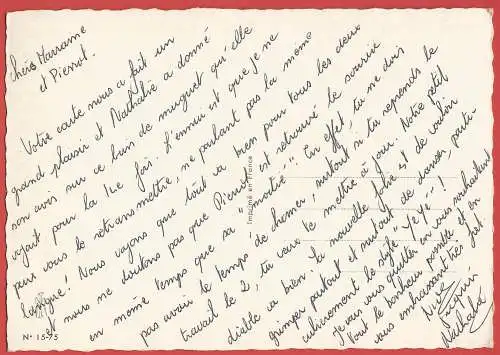 chers Marraine
et Pierrot.
Votre carte nous a fait un
grand plaisir et Nathalie a donné
son avis sur ce brin de muguet qu'elle
voyait pour la 1ère fois. L'ennui est que je ne
peux vous le retransmettre, ne parlant pas la même
langue! Nous voyons que tout va bien pour tous les deux
et nous ne doutons pas que Pierrot est retrouvé le sourire
en même temps que sa "moitié". En effet, tu ne dois
pas avoir le temps de chômer, surtout si tu reprends le
travail le 21 tu vas te mettre à jour. Notre petit
diable va bien: sa nouvelle joie est de vouloir
grimper partout et surtout de danser, parti-
culièrement le style "Yé-Yé"!
Je vais vous quitter en vous souhaitant
tout le bonheur possible et en
vous embrassant très fort.
Nathalie
Imprimé en France
N° 15-75